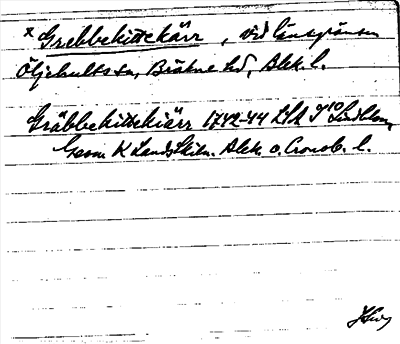 *Grebbekittekärr, vid länsgränsen
Öljehults sn, Bräkne hd, Blek. l.
Gräbbekittekiärr 1742-44 LSA I 10 Lindblom,
Geom. K Landskihn. Blek. o. Cronob. l.